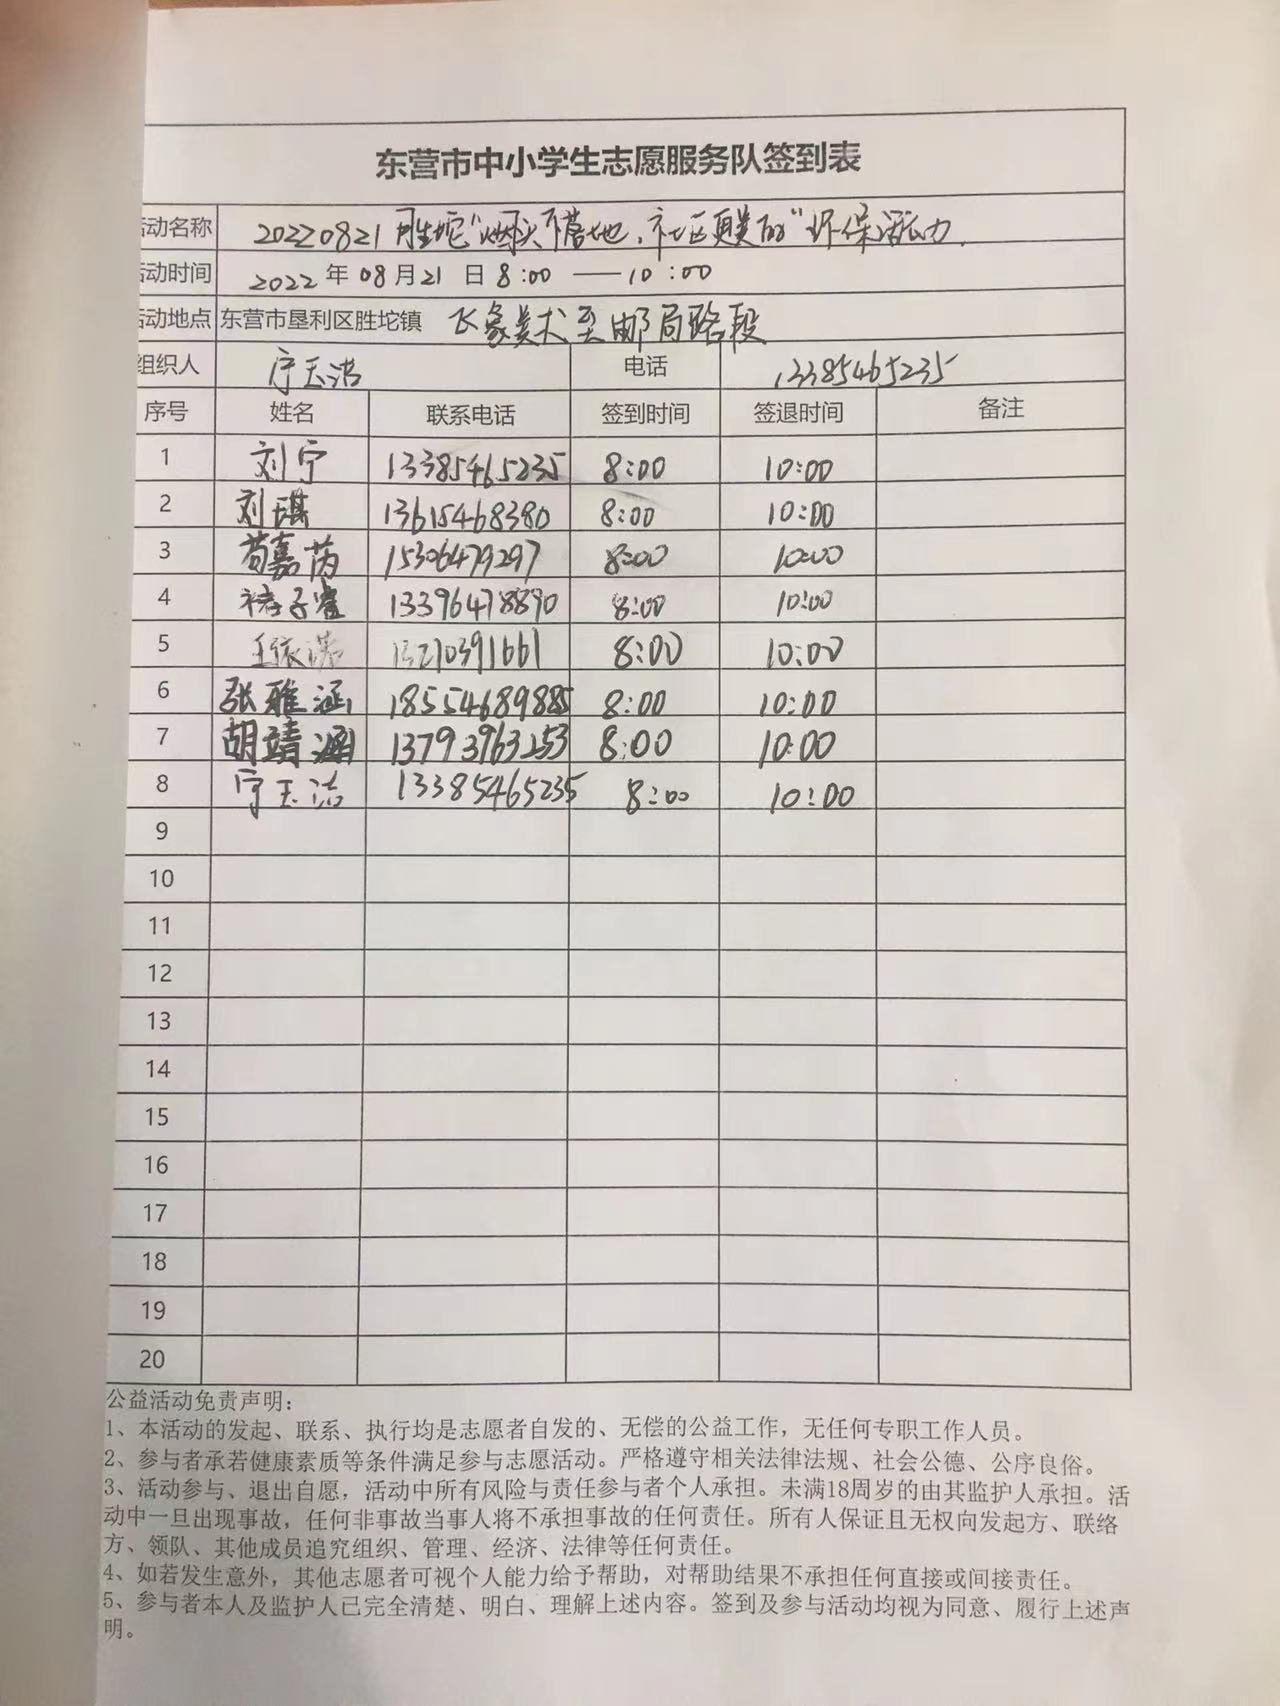 东营市中小学生志愿服务队签到表
活动名称 20220821胜坨“烟头不落地,社区更美的”环保活动
活动时间 2022年08月21日8:00——10:00
活动地点 东营市垦利区胜坨镇 飞象美术至邮局路段
组织人 宁玉洁 电话 13385465235
序号 姓名 联系电话 签到时间 签退时间 备注
1 刘宁 13385465235 8:00 10:00
2 刘琪 13615468380 8:00 10:00
3 苟嘉芮 15306479297 8:00 10:00
4 子睿 13396478890 8:00 10:00
5 王依诺 8:00 10:00
6 张雅涵 18554689885 8:00 10:00
7 胡靖涵 13793963253 8:00 10:00
8 宁玉洁 13385465235 8:00 10:00
9
10
11
12
13
14
15
16
17
18
19
20
公益活动免责声明:
1、本活动的发起、联系、执行均是志愿者自发的、无偿的公益工作,无任何专职工作人员。
2、参与者承若健康素质等条件满足参与志愿活动。严格遵守相关法律法规、社会公德、公序良俗。
3、活动参与、退出自愿,活动中所有风险与责任参与者个人承担。未满18周岁的由其监护人承担。活
动中一旦出现事故,任何非事故当事人将不承担事故的任何责任。所有人保证且无权向发起方、联络
方、领队、其他成员追究组织、管理、经济、法律等任何责任。
4、如若发生意外,其他志愿者可视个人能力给予帮助,对帮助结果不承担任何直接或间接责任。
5、参与者本人及监护人已完全清楚、明白、理解上述内容。签到及参与活动均视为同意、履行上述声
明。